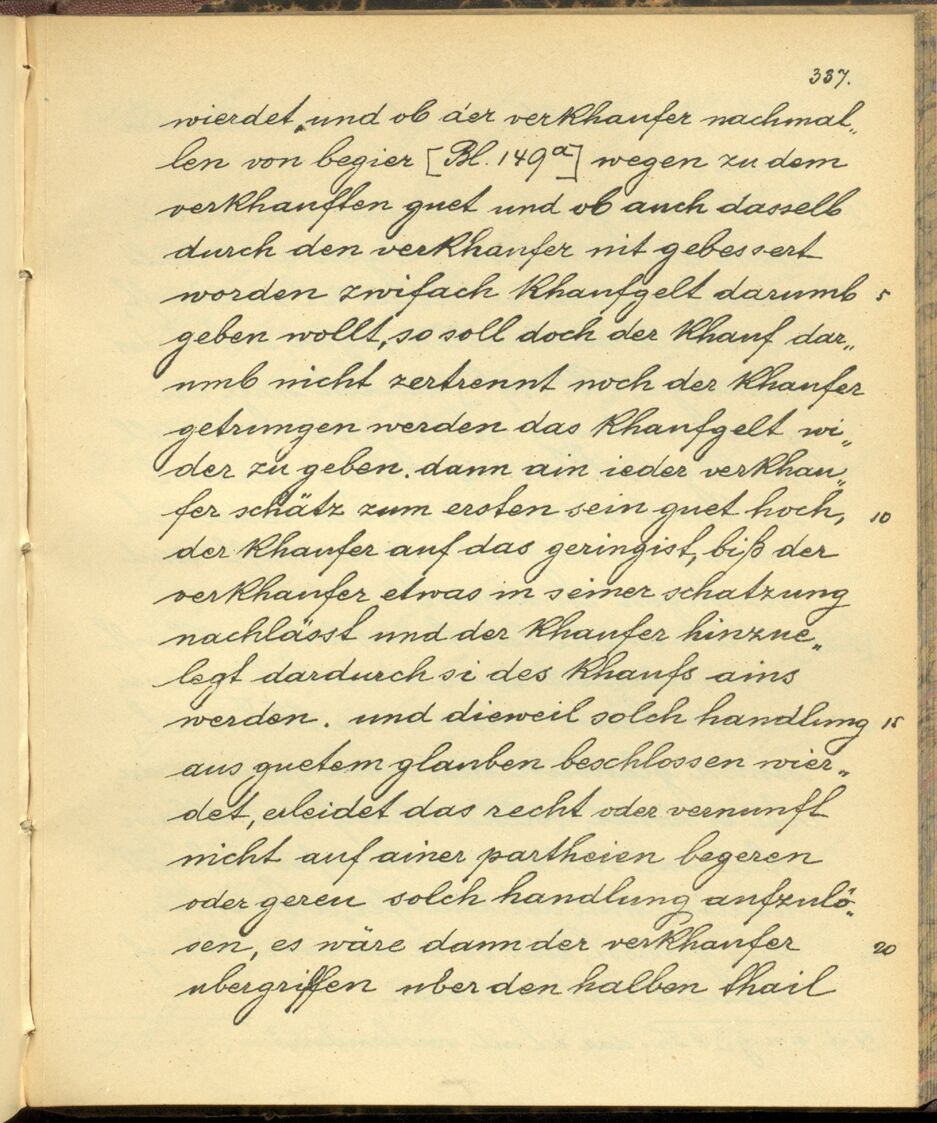 337.
wierdet, und ob der verkhaufer nachmal„
len von begier [Bl. 149a] wegen zu dem
verkhaufften guet und ob auch dasselb
durch den verkhaufer nit gebessert
worden zwifach khaufgelt darumb 5
geben wollt, so soll doch der khauf dar„
umb nicht zertrennt noch der khaufer
getrungen werden das khaufgelt wi„
der zu geben. dann ain ieder verkhau„
fer schätz zum ersten sein guet hoch, 10
der khaufer auf das geringist, biß der
verkhaufer etwas in seiner schatzung
nachlässt und der khaufer hinzue„
legt dardurch si des khaufs ains
werden. und dieweil solch handlung 15
aus guetem glauben beschlossen wier„
det, erleidet das recht oder vernunft
nicht auf ainer partheien begeren
oder gereu solch handlung aufzulö„
sen, es wäre dann der verkhaufer 20
ubergriffen uber den halben thail